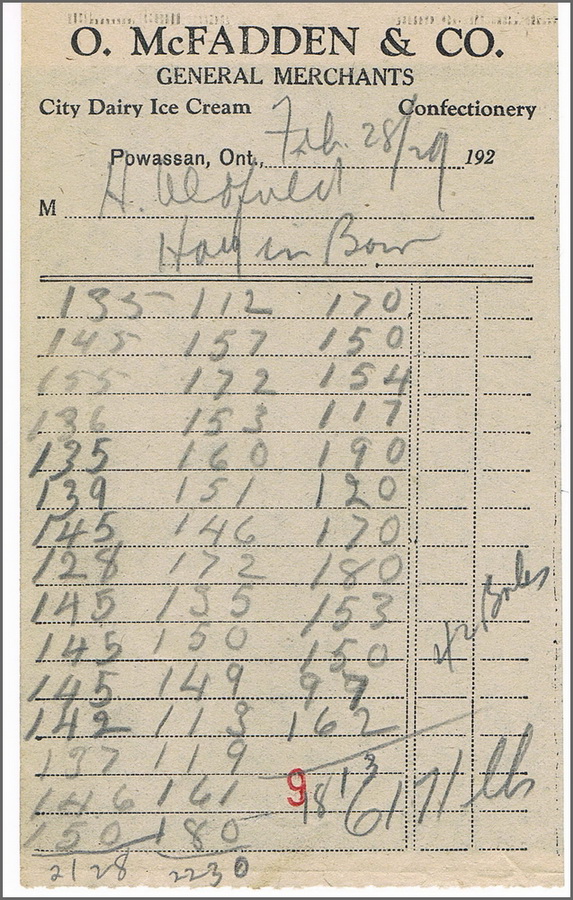 O. McFADDEN & CO.
GENERAL MERCHANTS
City Dairy Ice Cream Confectionery
Powassan, Ont., Feb. 28/29 192
M H. Oldfield
Hay in Barn
135 112 170
145 157 150
155 172 154
136 153 117
135 160 190
139 151 120
145 146 170
128 172 180
145 135 153
145 150 150
145 149 97
142 113 162
137 119
146 161 9 1813
150 180
2128 2230
42 Bales
6171 lbs